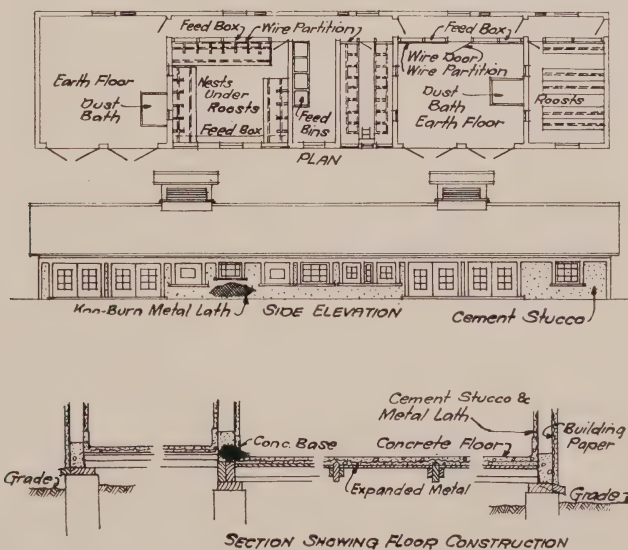 Feed Box Wire Partition Feed Box
Earth Floor
Dust Bath
Nests Under Roosts
Feed Box
Feed Bins
Wire Door
Wire Partition
Dust Bath
Earth Floor
Roosts
PLAN
Kno-Burn Metal Lath
SIDE ELEVATION
Cement Stucco
Cement Stucco &
Metal Lath
Building
Paper
Conc. Base
Concrete Floor
Grade
Expanded Metal
Grade
SECTION SHOWING FLOOR CONSTRUCTION